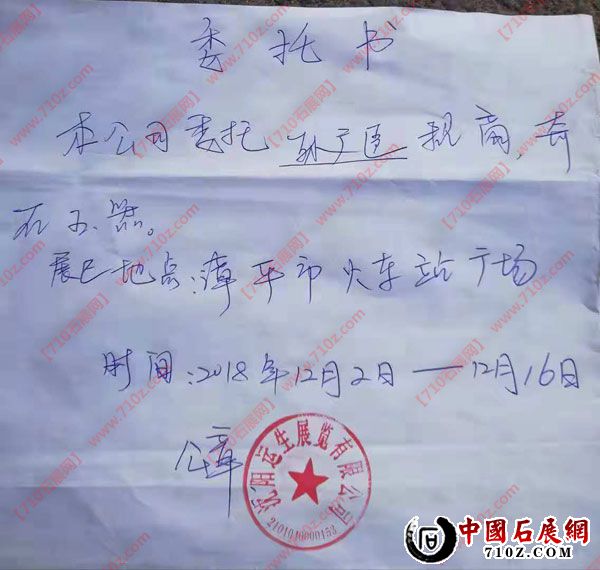 委托书
本公司委托 孙广臣 招商,奇
石玉器。
展巳地点:漳平市火车站广场
时间:2018年12月2日——12月16日
公章
沈阳运生展览有限公司
2101040000153
中國石展網
710z.com
【710石展网】
www.710z.com